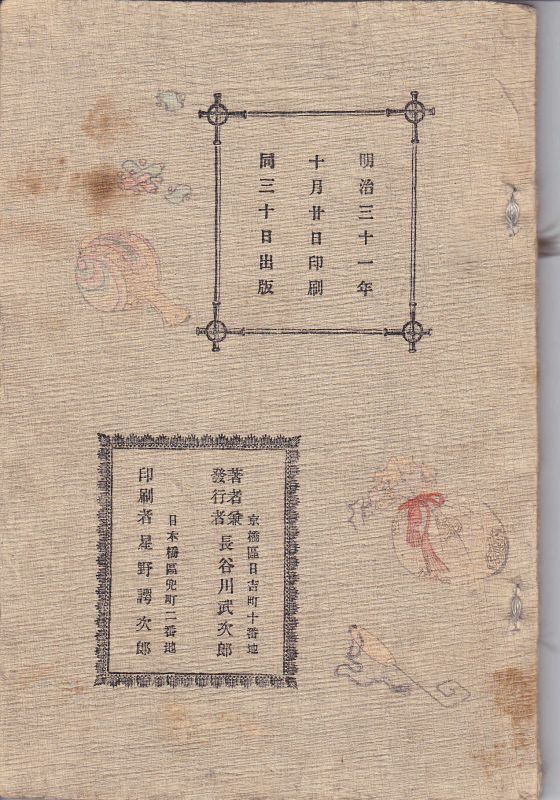 明治三十一年
十月廿日印刷
同三十日出版
京橋區日吉町十番地
著者兼
發行者 長谷川武次郎
日本橋區兜町二番地
印刷者 星野錫次郎